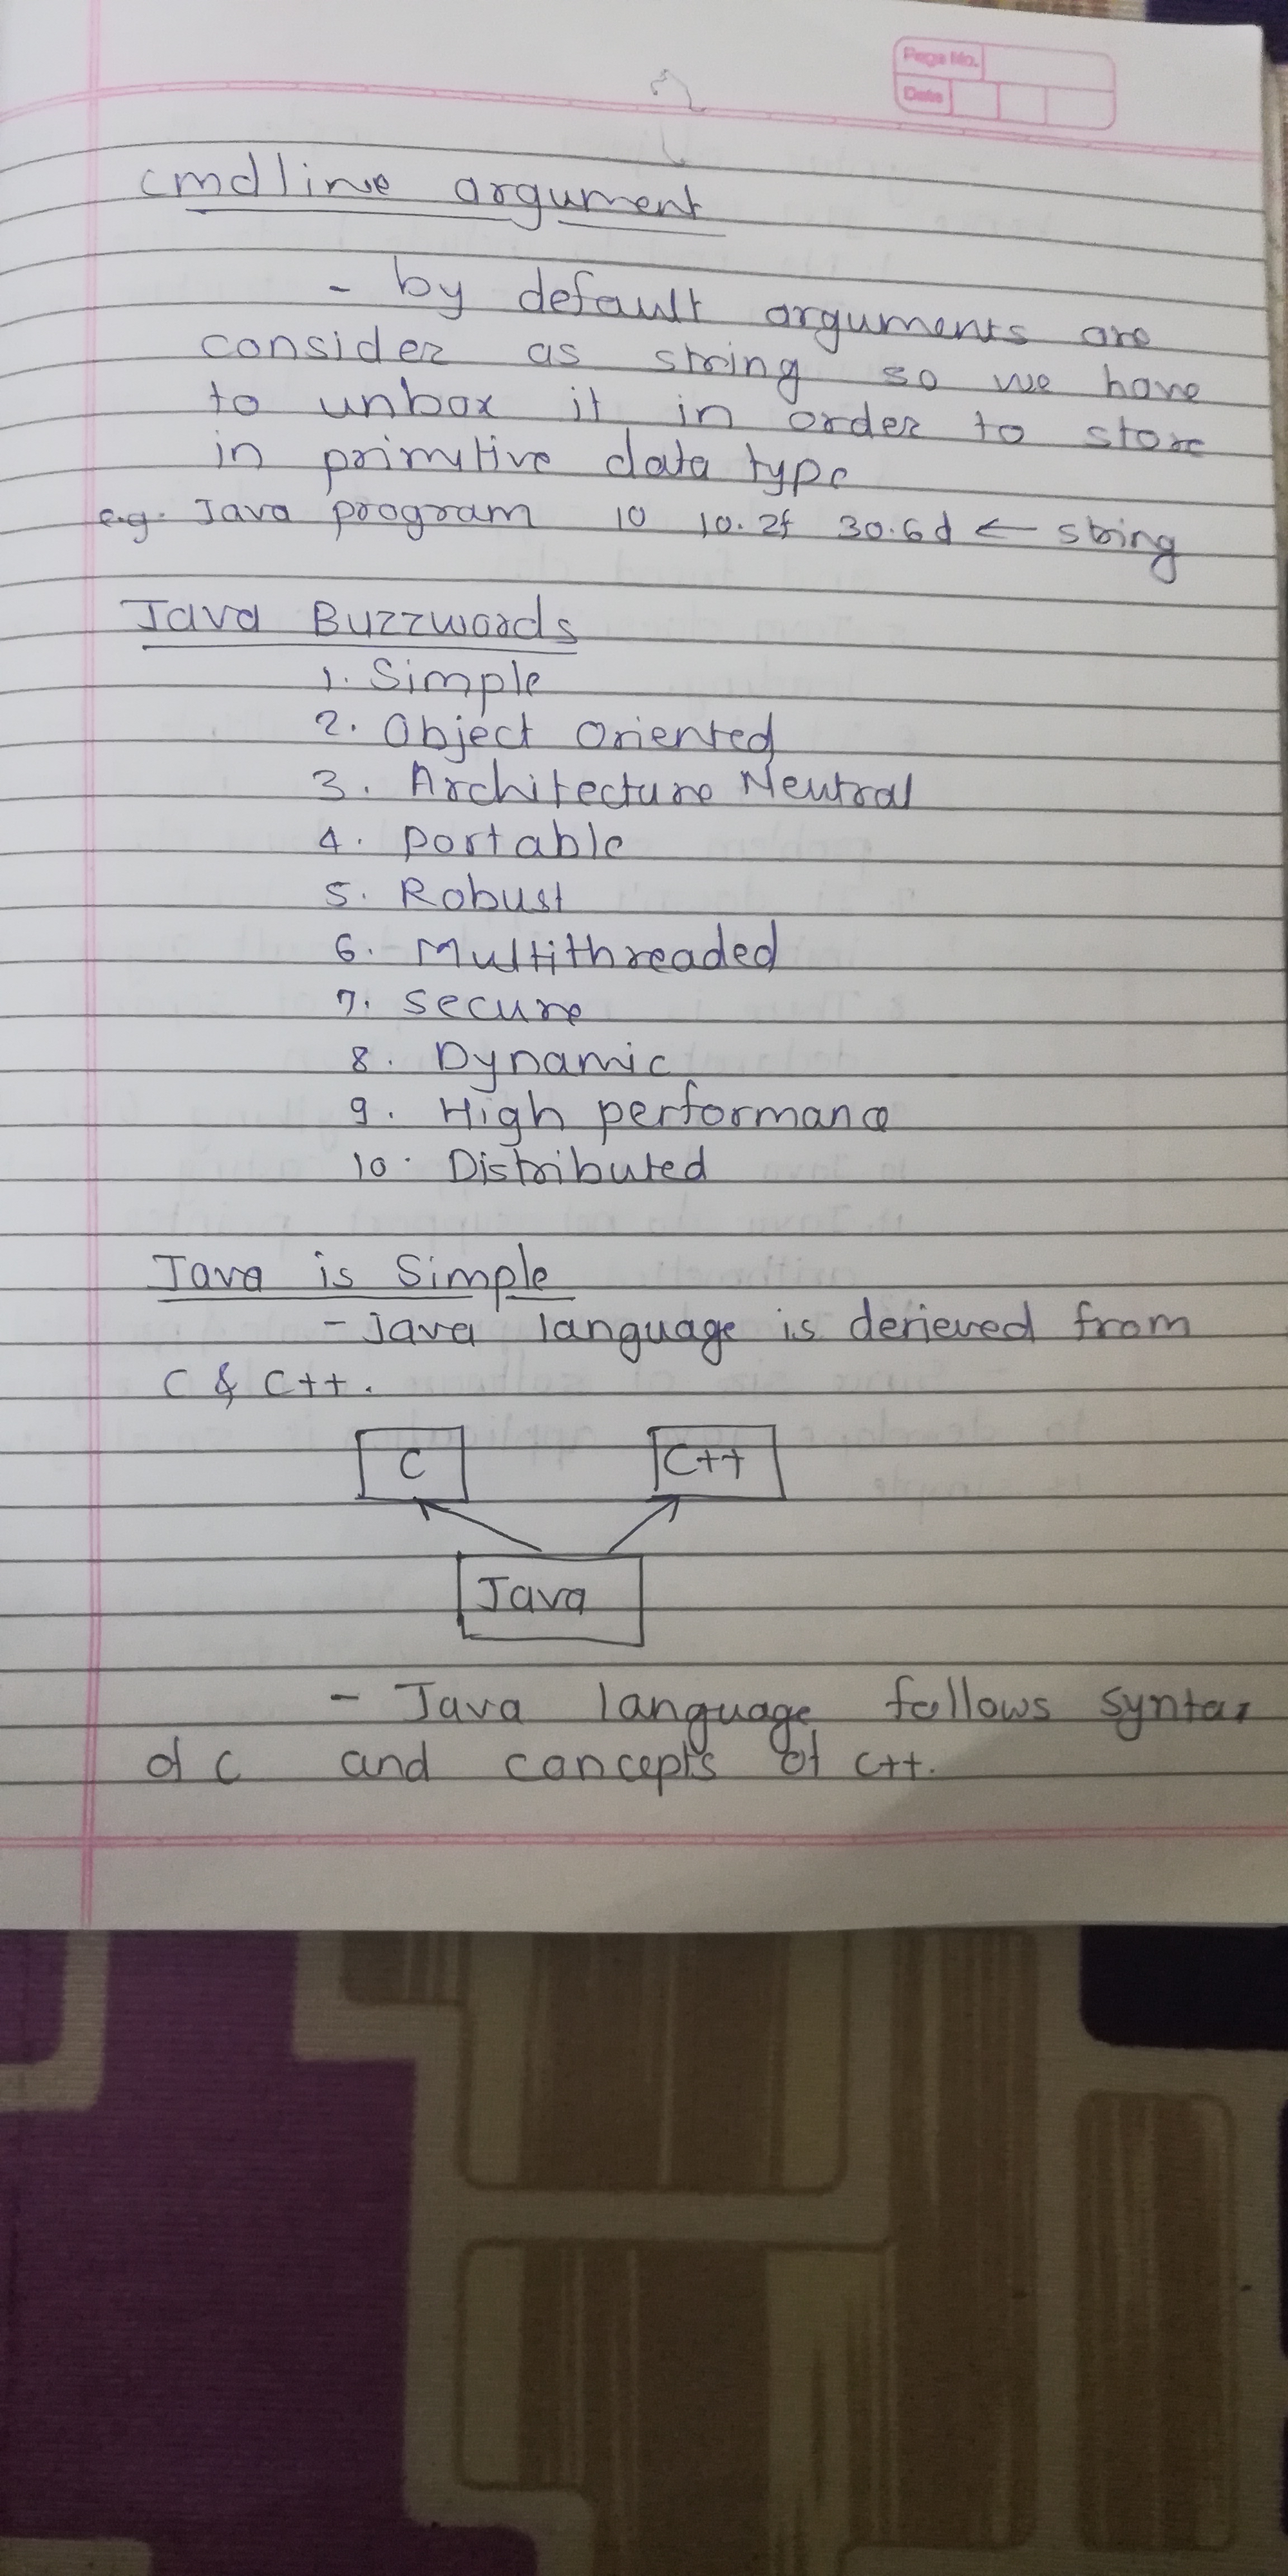 Page No.
Date
cmdline argument
- by default arguments are
consider as string so we have
to unbox it in order to store
in primitive data type
e.g. Java program 10 10.2f 30.6d ← string
Java Buzzwords
1. Simple
2. Object Oriented
3. Architecture Neutral
4. portable
5. Robust
6. Multithreaded
7. secure
8. Dynamic
9. High performance
10. Distributed
Java is Simple
- Java language is derieved from
C & C++.
C C++
Java
- Java language follows syntax
of C and concepts of C++.